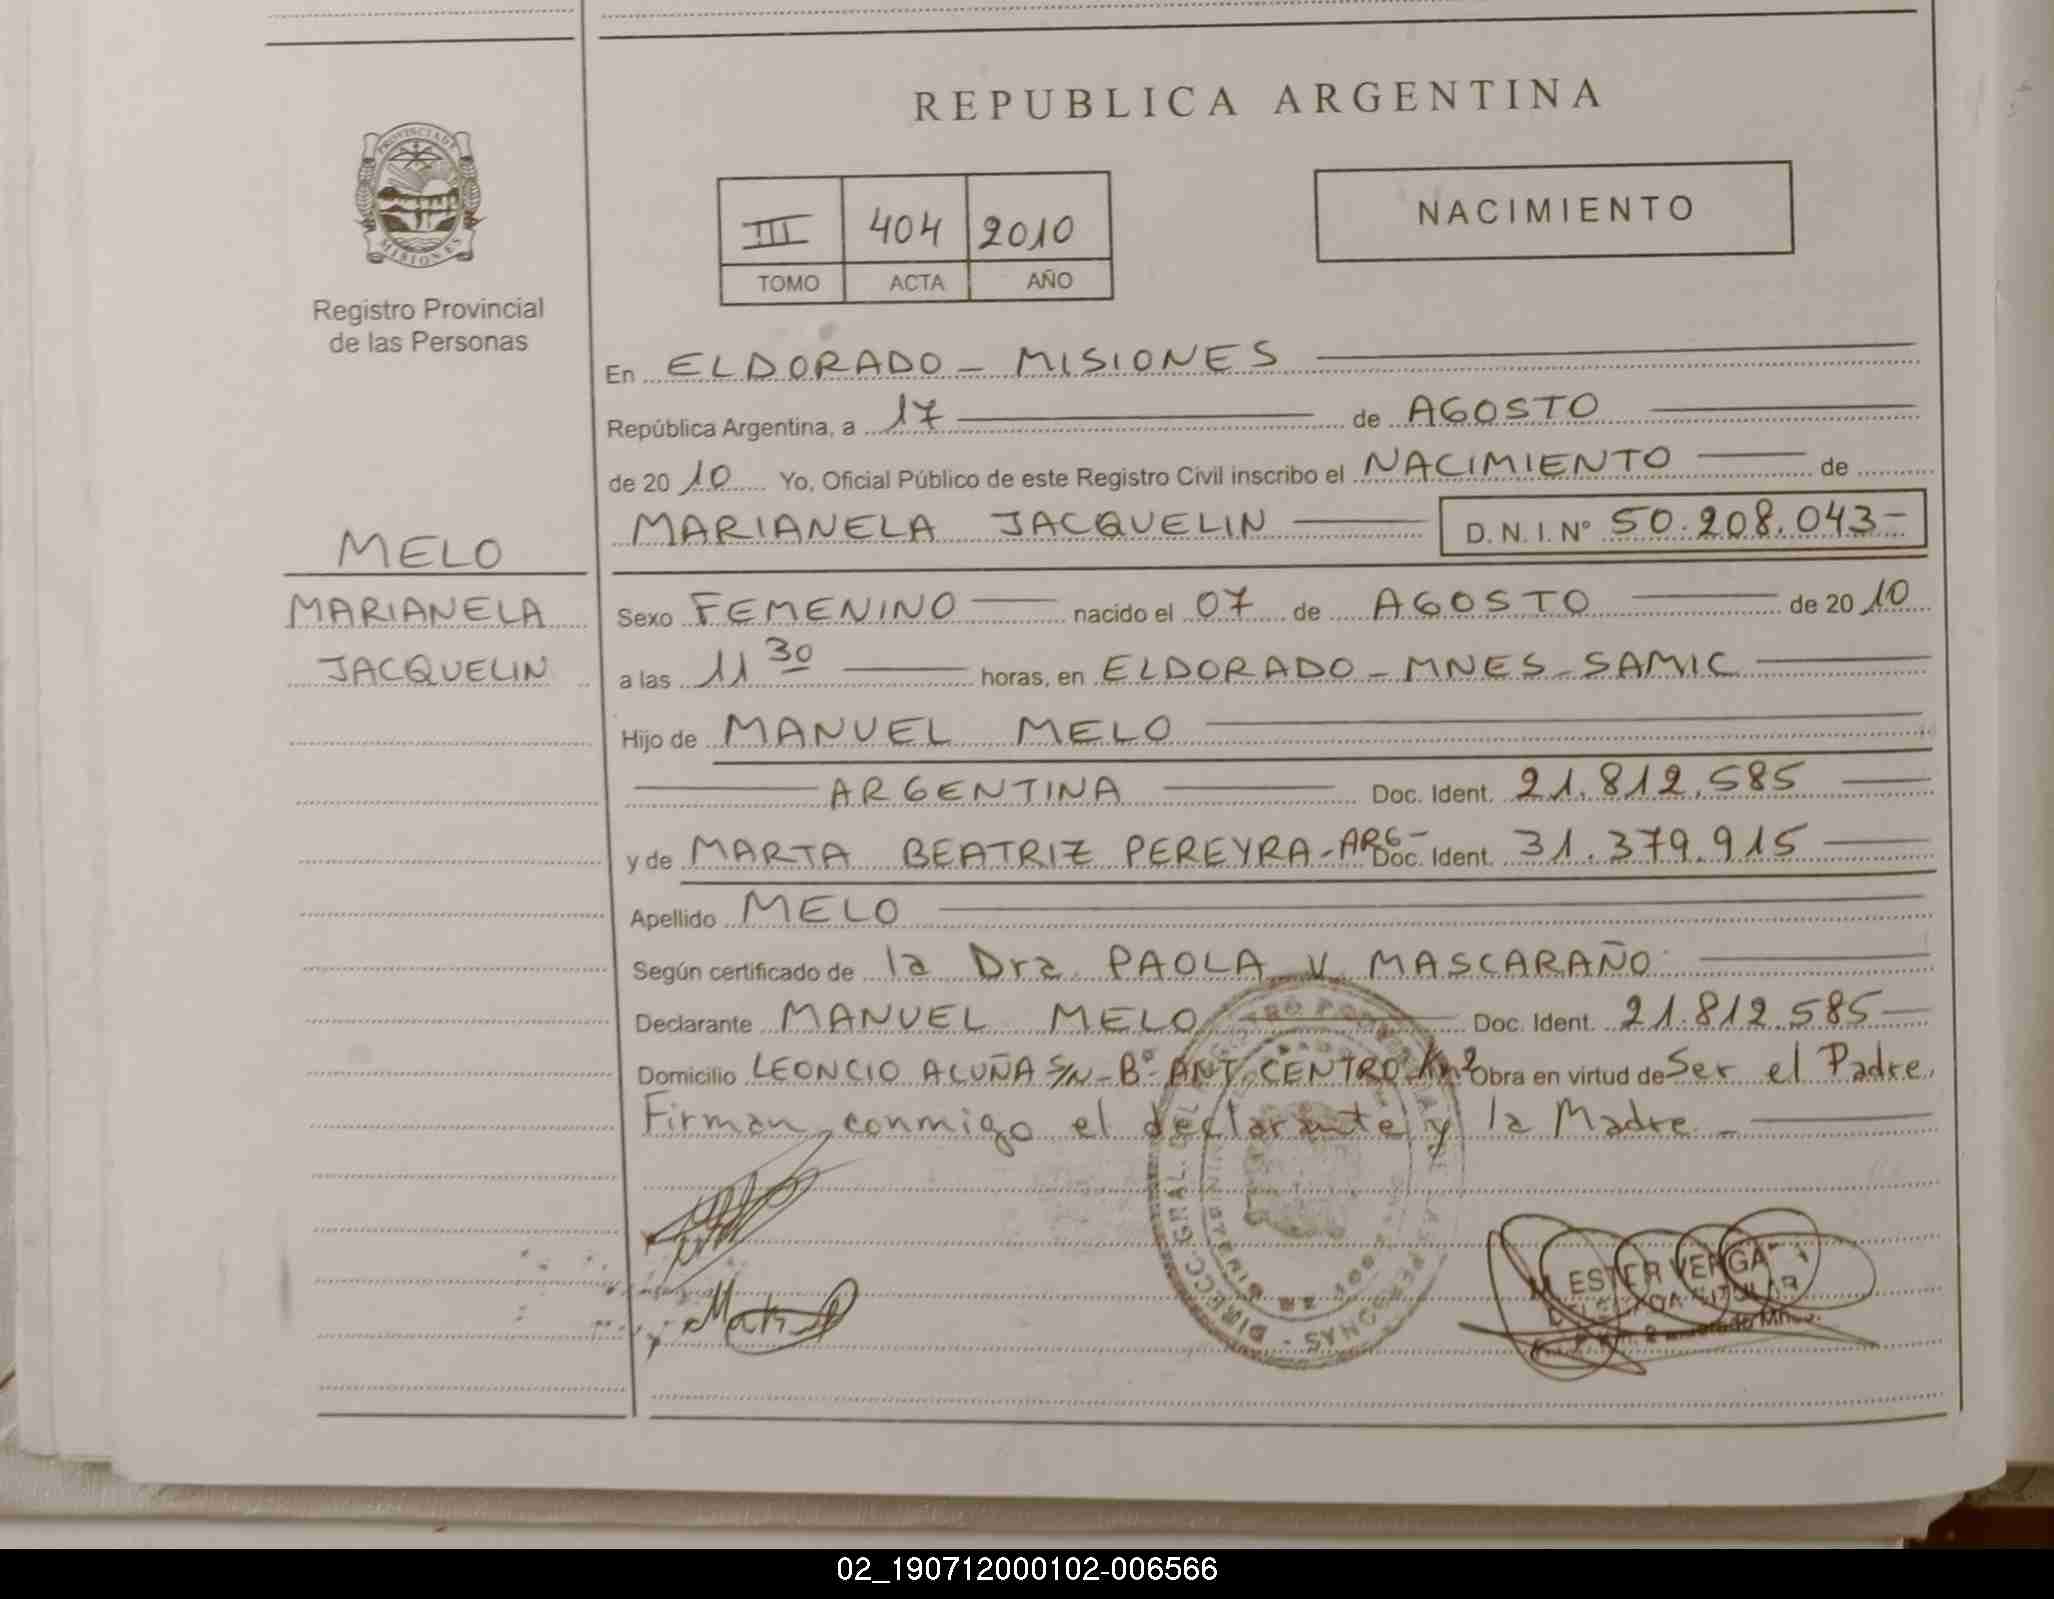 REPUBLICA ARGENTINA
PROVINCIA DE MISIONES
Registro Provincial
de las Personas
III 404 2010
TOMO ACTA AÑO
NACIMIENTO
En ELDORADO - MISIONES
República Argentina, a 17 de AGOSTO
de 2010 Yo, Oficial Público de este Registro Civil inscribo el NACIMIENTO de
MARIANELA JACQUELIN D.N.I. Nº 50.208.043-
MELO
MARIANELA
JACQUELIN
Sexo FEMENINO nacido el 07 de AGOSTO de 2010
a las 11 30 horas, en ELDORADO - MNES - SAMIC
Hijo de MANUEL MELO
ARGENTINA Doc. Ident. 21.812.585
y de MARTA BEATRIZ PEREYRA - ARG- Doc. Ident. 31.379.915
Apellido MELO
Según certificado de la Dra. PAOLA V. MASCARAÑO
Declarante MANUEL MELO Doc. Ident. 21.812.585
Domicilio LEONCIO ACUÑA S/N - Bº ANT. CENTRO Km 2 Obra en virtud de Ser el Padre.
Firman conmigo el declarante y la Madre. -
DIRECC. GRAL. DEL REGISTRO PERSONAS
M. ESTER VERGA
DELEGADA TITULAR
02_190712000102-006566